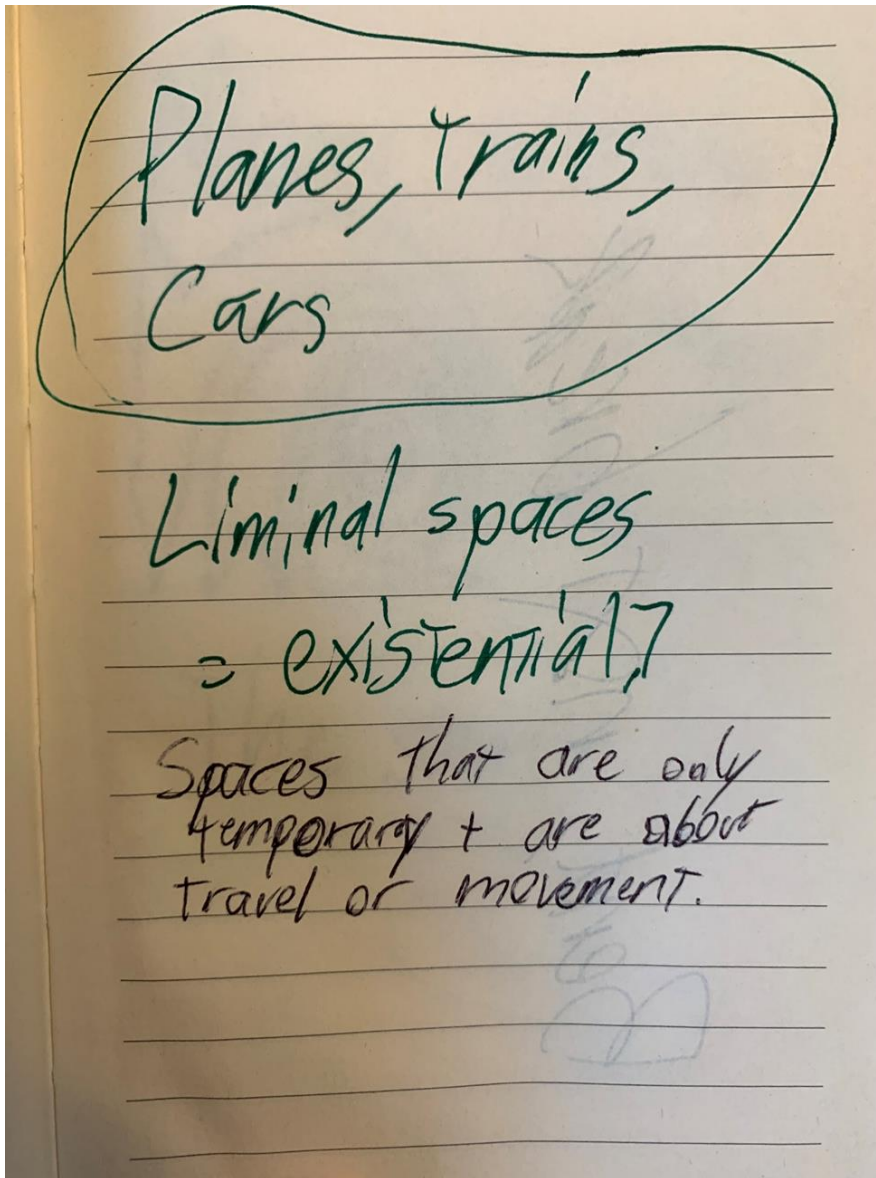 Planes, trains,
Cars
Liminal spaces
= existential?
Spaces that are only
temporary + are about
travel or movement.